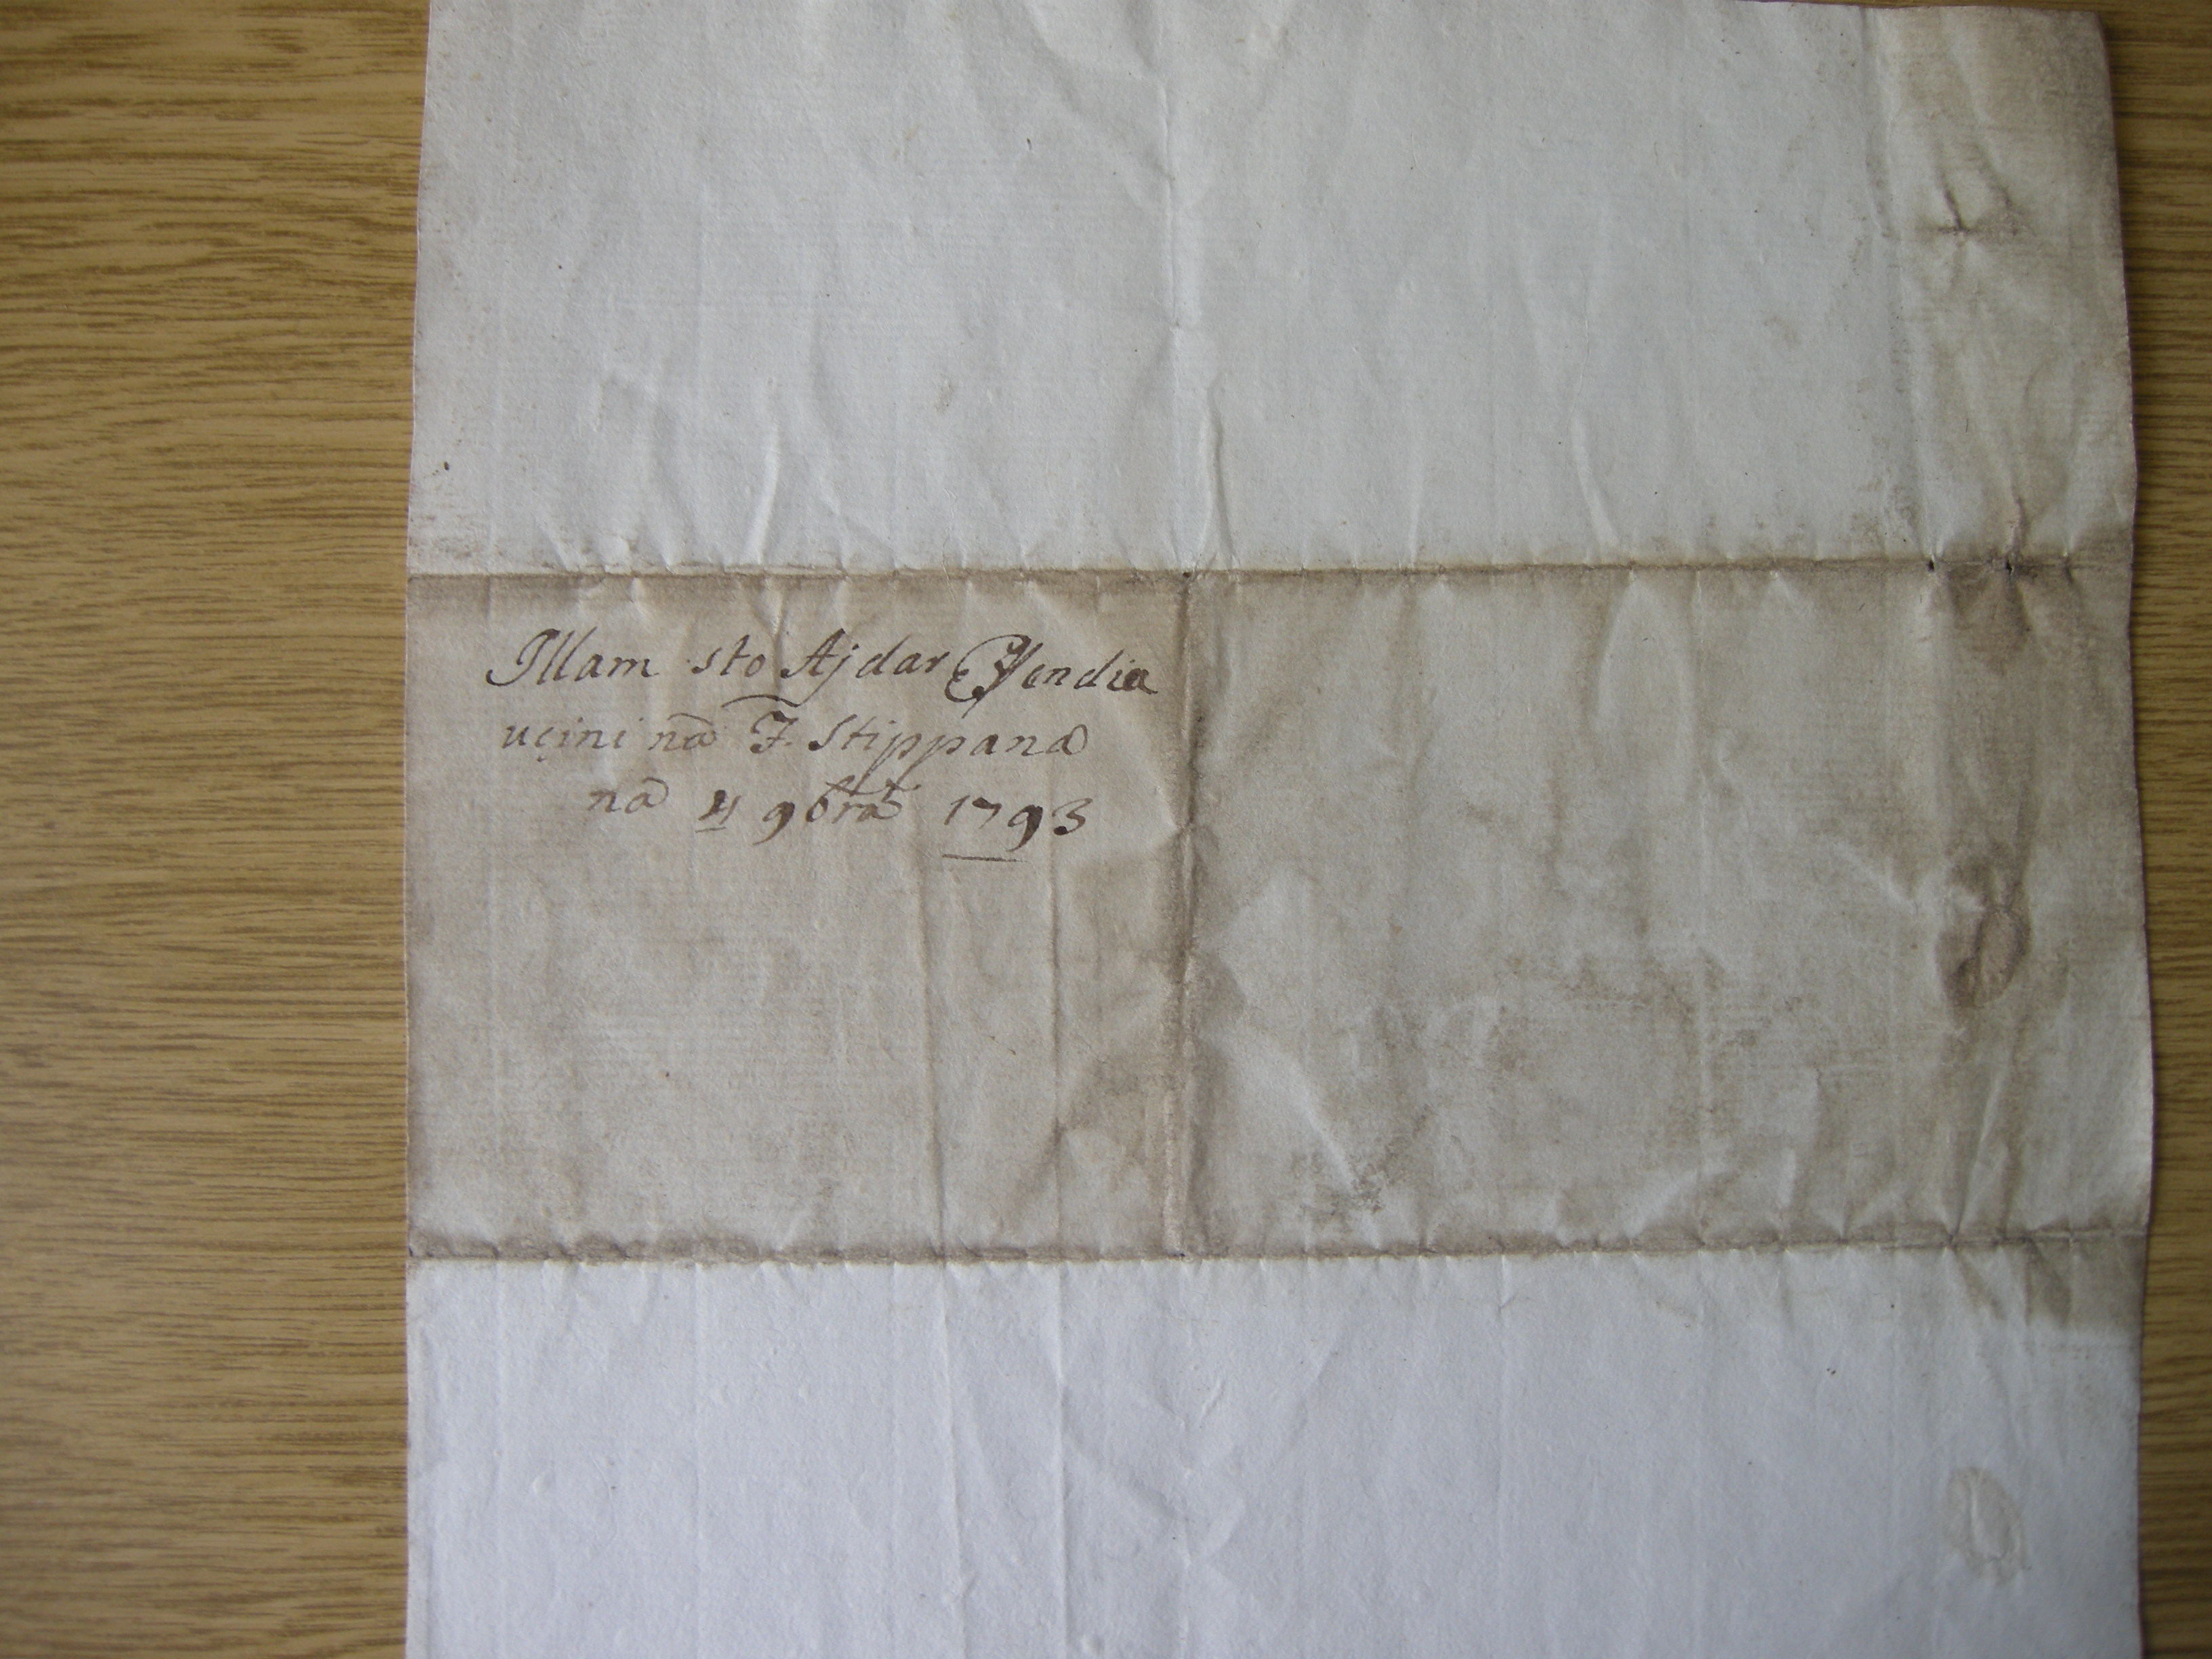 Illam sto Ajdar Effendia
uçini na F. Stippana
na 4 9bra 1793